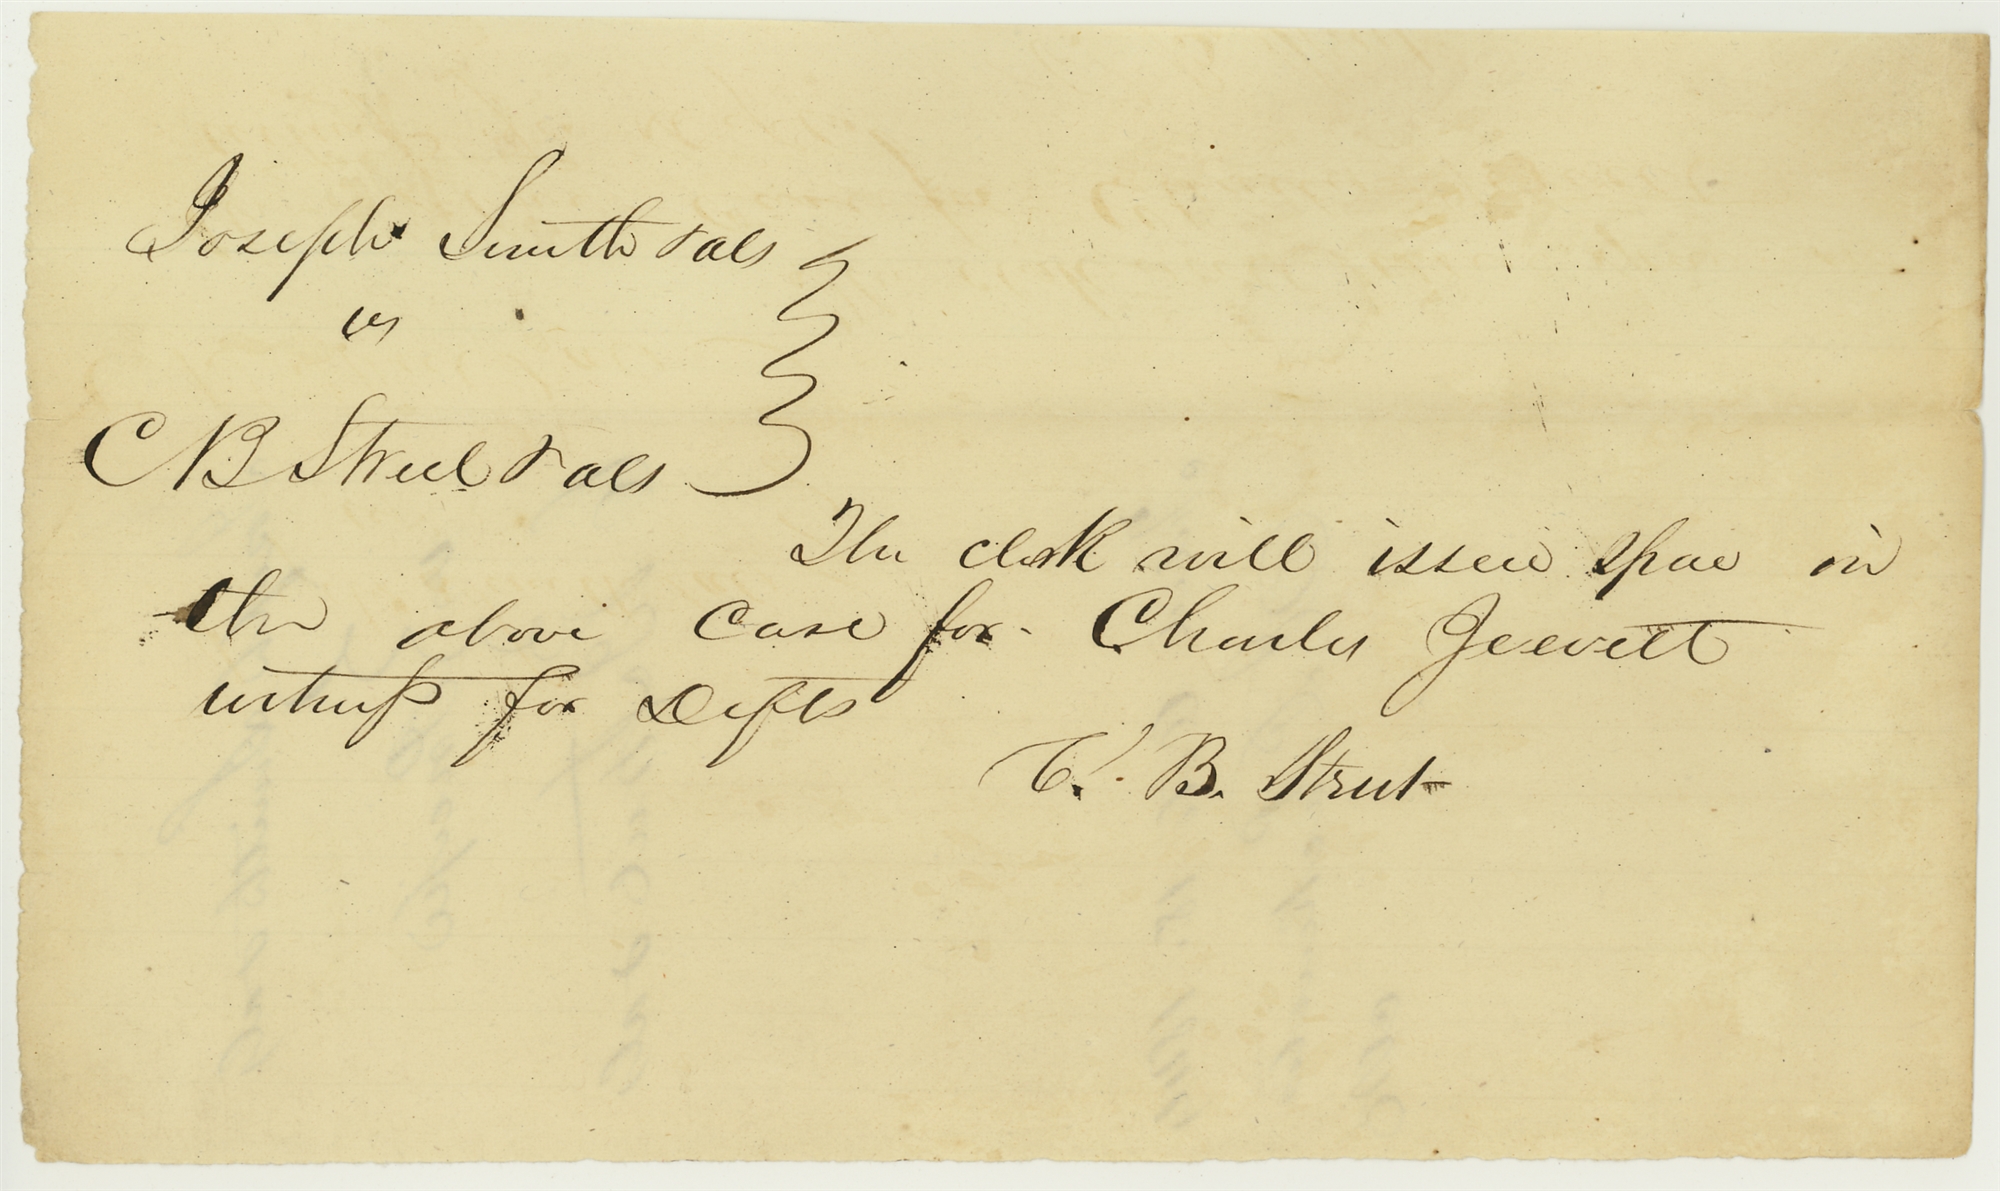 Joseph Smith & als
vs
C B Street & als
The clerk will issue spae in
the above case for Charles Jewett
witness for Defts
C. B. Street